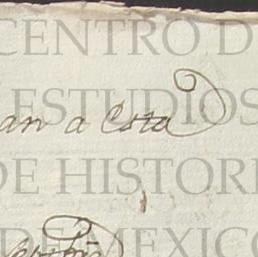 CENTRO D
ESTUDIOS
an a esta
DE HISTORI
DE MEXICO